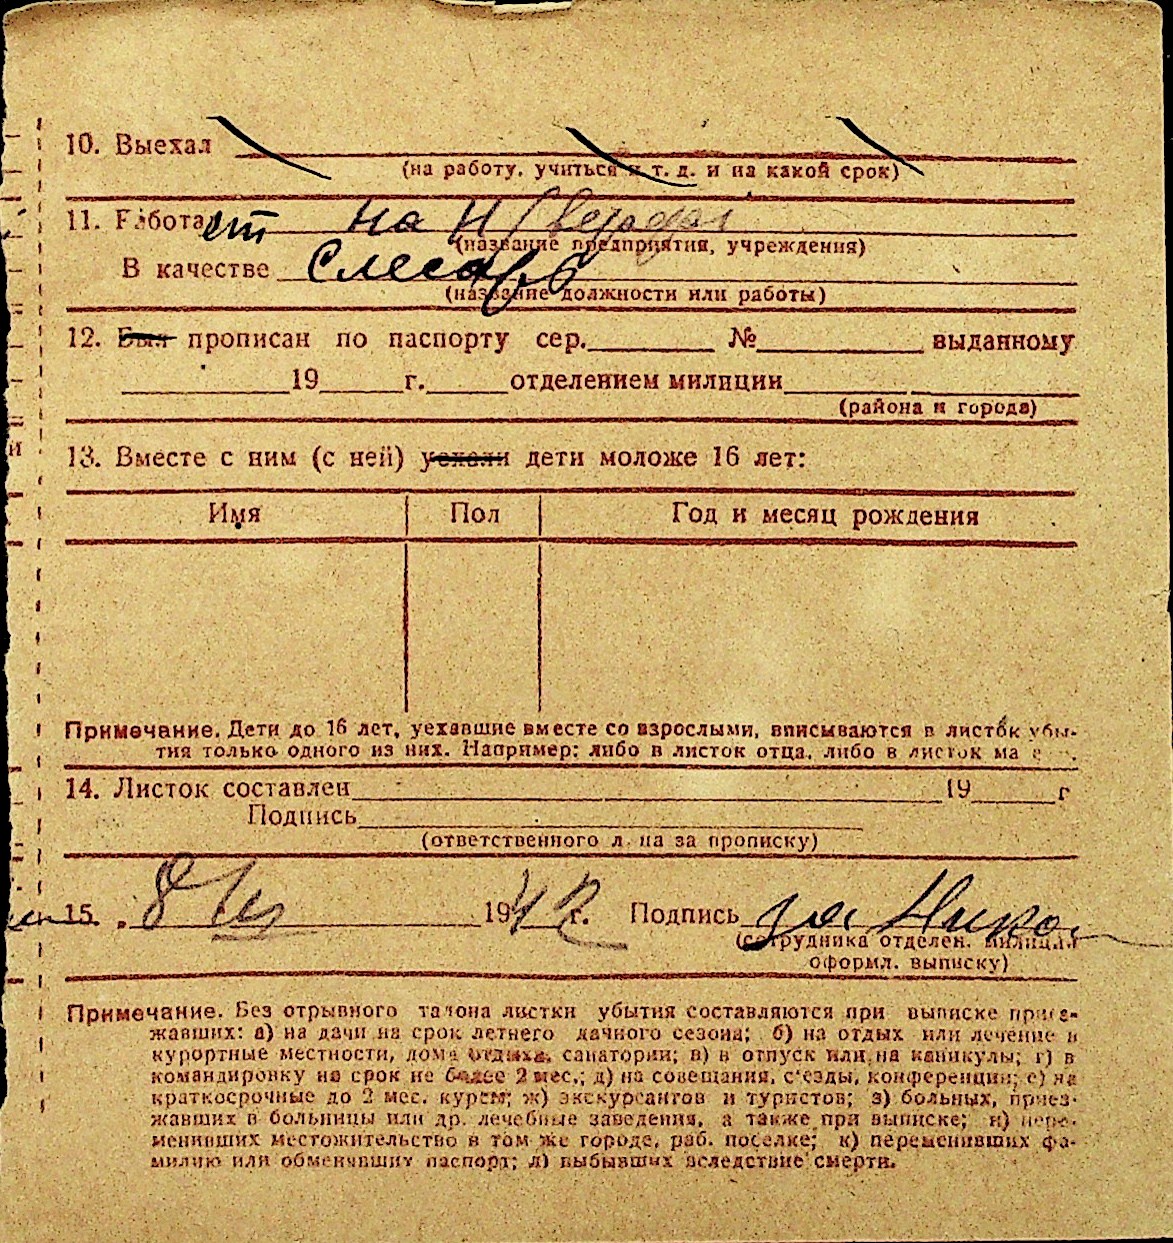 10. Выехал
(на работу, учиться и т. д. и на какой срок)
11. Работает на
(название предприятия, учреждения)
В качестве слесарь
(название должности или работы)
12. Был прописан по паспорту сер. № выданному
19 г. отделением милиции
(района и города)
13. Вместе с ним (с ней) уехали дети моложе 16 лет:
Имя Пол Год и месяц рождения
Примечание. Дети до 16 лет, уехавшие вместе со взрослыми, вписываются в листок убы-
тия только одного из них. Например: либо в листок отца, либо в листок
14. Листок составлен 19 г
Подпись
(ответственного за прописку)
15. „ 8 1942 г. Подпись
(сотрудника отделен. милиции
оформл. выписку)
Примечание. Без отрывного талона листки убытия составляются при выписке приез-
жавших: а) на дачи на срок летнего дачного сезона; б) на отдых или лечение в
курортные местности, дома отдыха, санатории; в) в отпуск или на каникулы; г) в
командировку на срок не более 2 мес.; д) на совещания, с'езды, конференции; е) на
краткосрочные до 2 мес. курсы; ж) экскурсантов и туристов; з) больных, приез-
жавших в больницы или др. лечебные заведения, а также при выписке; и) пере-
менивших местожительство в том же городе, раб. поселке; к) переменивших фа-
милию или обменивших паспорт; л) выбывших вследствие смерти.